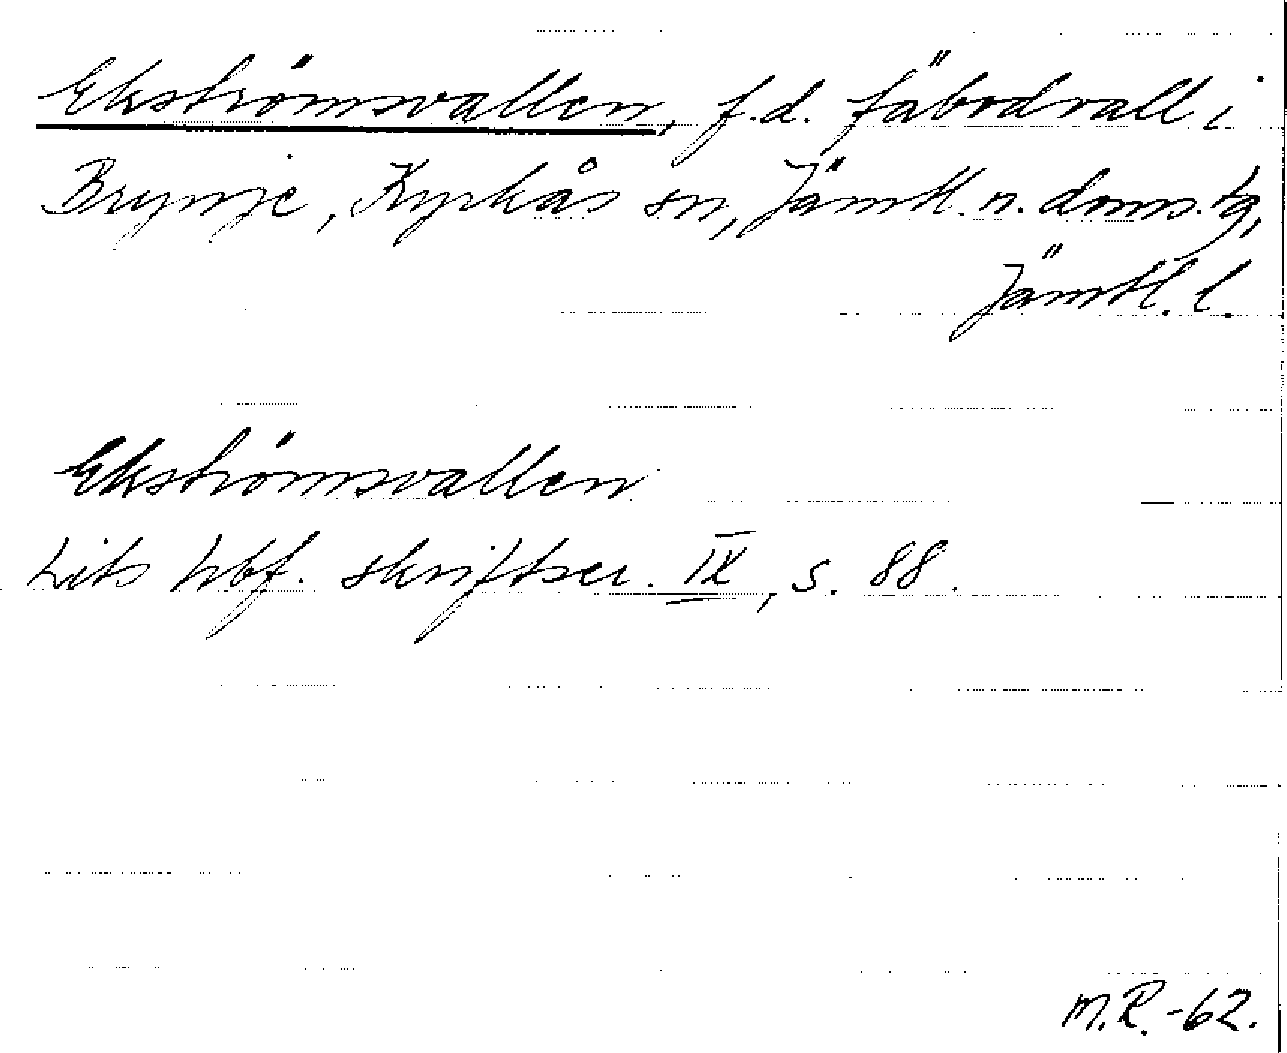 Ekströmsvallen, f.d. fäbodvall i
Brynje, Kyrkås sn, Jämtl. n. doms. tg,
Jämtl. l.
Ekströmsvallen
Lits hbf. skriftser. IX, s. 88.
M.R.-62.